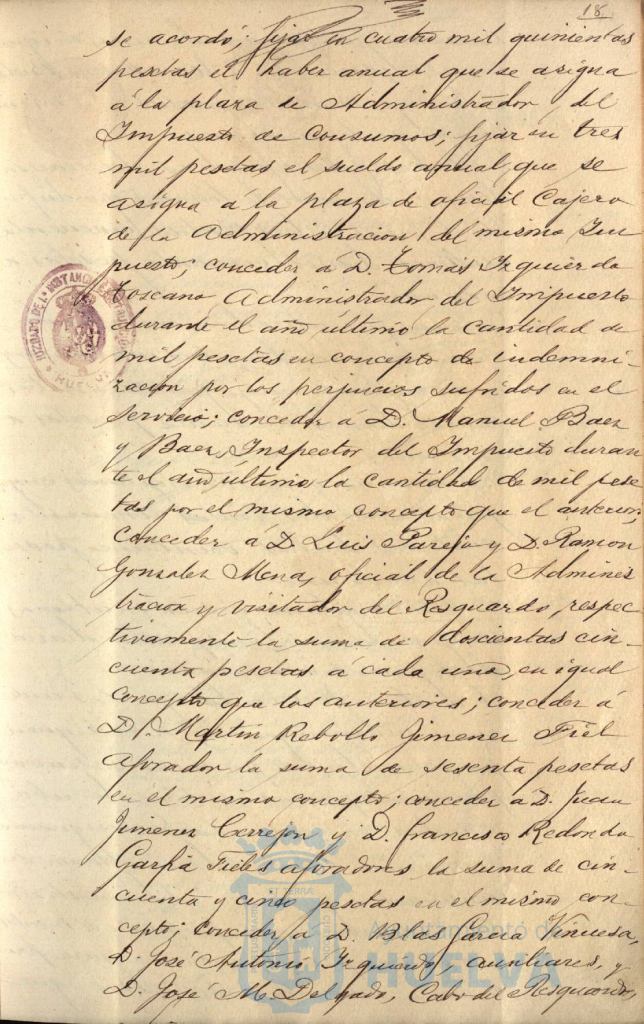 18.
se acordó; fijar en cuatro mil quinientas
pesetas el haber anual que se asigna
á la plaza de Administrador, del
Impuesto de Consumos; fijar en tres
mil pesetas el sueldo anual que se
asigna á la plaza de oficial Cajero
de la Administracion del mismo Im
puesto; conceder á D. Tomás Izquierdo
Toscano Administrador del Impuesto
durante el año último la cantidad de
mil pesetas en concepto de indemni-
zacion por los perjuicios sufridos en el
servicio; conceder á D. Manuel Baez
y Baez, Inspector del Impuesto duran
te el año último la cantidad de mil pese
tas por el mismo concepto que el anterior;
conceder á D. Luis Parejo y D. Ramon
Gonzalez Mena, oficial de la Adminis
tracion y visitador del Resguardo, respec-
tivamente la suma de doscientas cin-
cuenta pesetas á cada uno, en igual
concepto que los anteriores; conceder á
D. Martin Rebollo Jimenez Fiel
aforador la suma de sesenta pesetas
en el mismo concepto; conceder a D. Juan
Jimenez Cerrejon y D. Francisco Redondo
Garfia Fieles aforadores la suma de cin-
cuenta y cinco pesetas en el mismo con-
cepto; conceder a D. Blas Garcia Viñuesa,
D. José Antonio Izquierdo, auxiliares, y
D. José M. Delgado, Cabo del Resguardo,
HUELVA
Ayuntamiento de
HUELVA